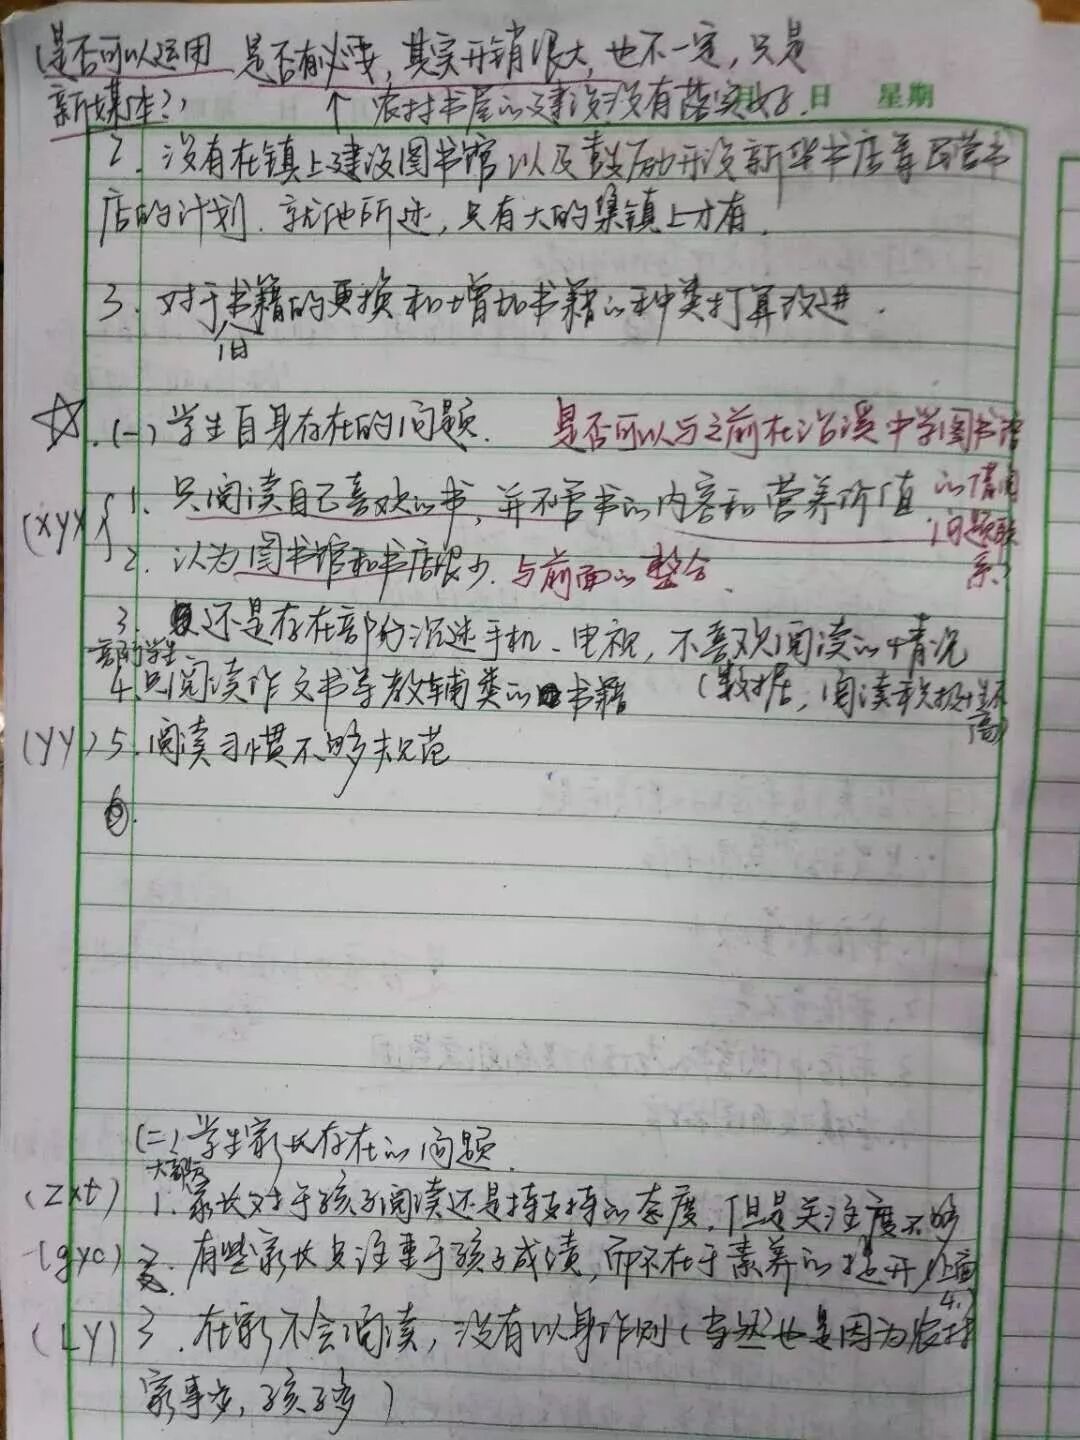 (是否可以运用 是否有必要，其实开销很大，也不一定，只是
新媒体?) ↑ 农村书屋的建设没有落实好. 日 星期
2. 没有在镇上建设图书馆以及鼓励开设新华书店等民营书
店的计划. 就他所述，只有大的集镇上才有.
3. 对于书籍的更换和增加书籍的种类打算改进.
旧
☆.(一)学生自身存在的问题. 是否可以与之前在沿溪中学图书馆
(xyy){ 1. 只阅读自己喜欢的书，并不管书的内容和营养价值. 的借阅
问题联
2. 认为图书馆和书店很少. 与前面的整合. 系
3. 还是存在部分沉迷手机、电视，不喜欢阅读的情况
部分学生
4. 只阅读作文书等教辅类的书籍 (数据，阅读积极性不
高)
(yy) 5. 阅读习惯不够规范
6.
(二)学生家长存在的问题.
大部分
(zxt) 1. 家长对于孩子阅读还是持支持的态度，但是关注度不够
(gyc) 2. 有些家长只注重于孩子成绩，而不在于素养的提升(上面
4.)
(Ly) 3. 在家不会阅读，没有以身作则(当然也是因为农村
家事多，孩子多)